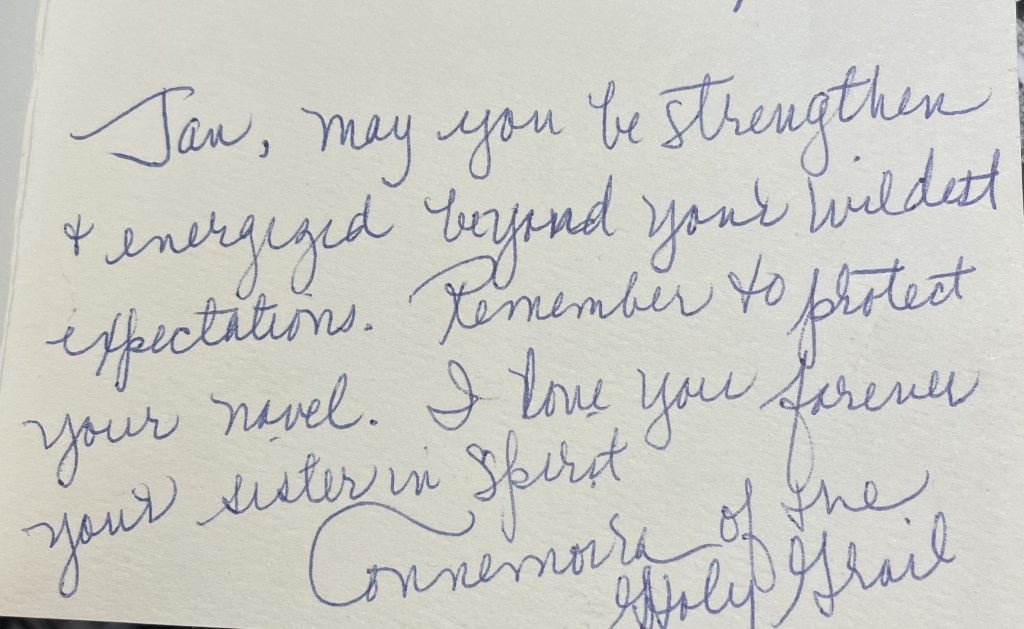 Jan, may you be strengthen
+ energized beyond your wildest
expectations. Remember to protect
your navel. I love you forever
your sister in Spirit
Connemoira of the
Holy Grail